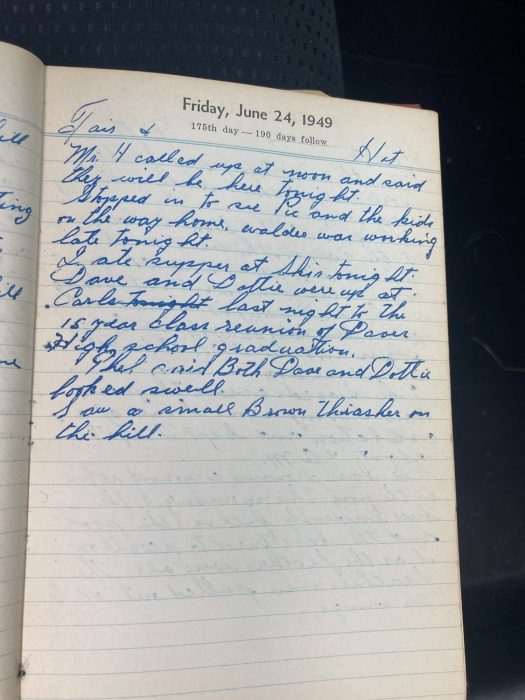 Friday, June 24, 1949
175th day — 190 days follow
Fair & Hot
Mr. H called up at noon and said
they will be here tonight.
Stopped in to see Pic and the kids
on the way home, walder was working
late tonight.
I ate supper at Shis tonight.
Dave and Dottie were up at
Carls tonight last night to the
15 year class reunion of Daves
High school graduation.
Ethel said Both Dave and Dottie
looked swell.
Saw a small Brown Thrasher on
the hill.